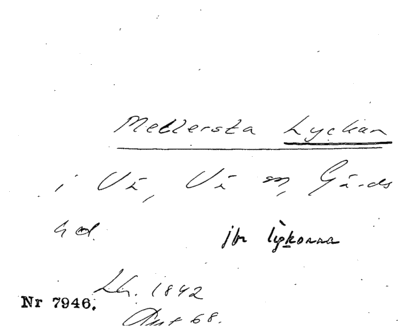 Mellersta Lyckan
i Vä, Vä sn, Gärds
hd. jbr lỳkorna
Lh. 1842
Nr 7946.
Akt 68.